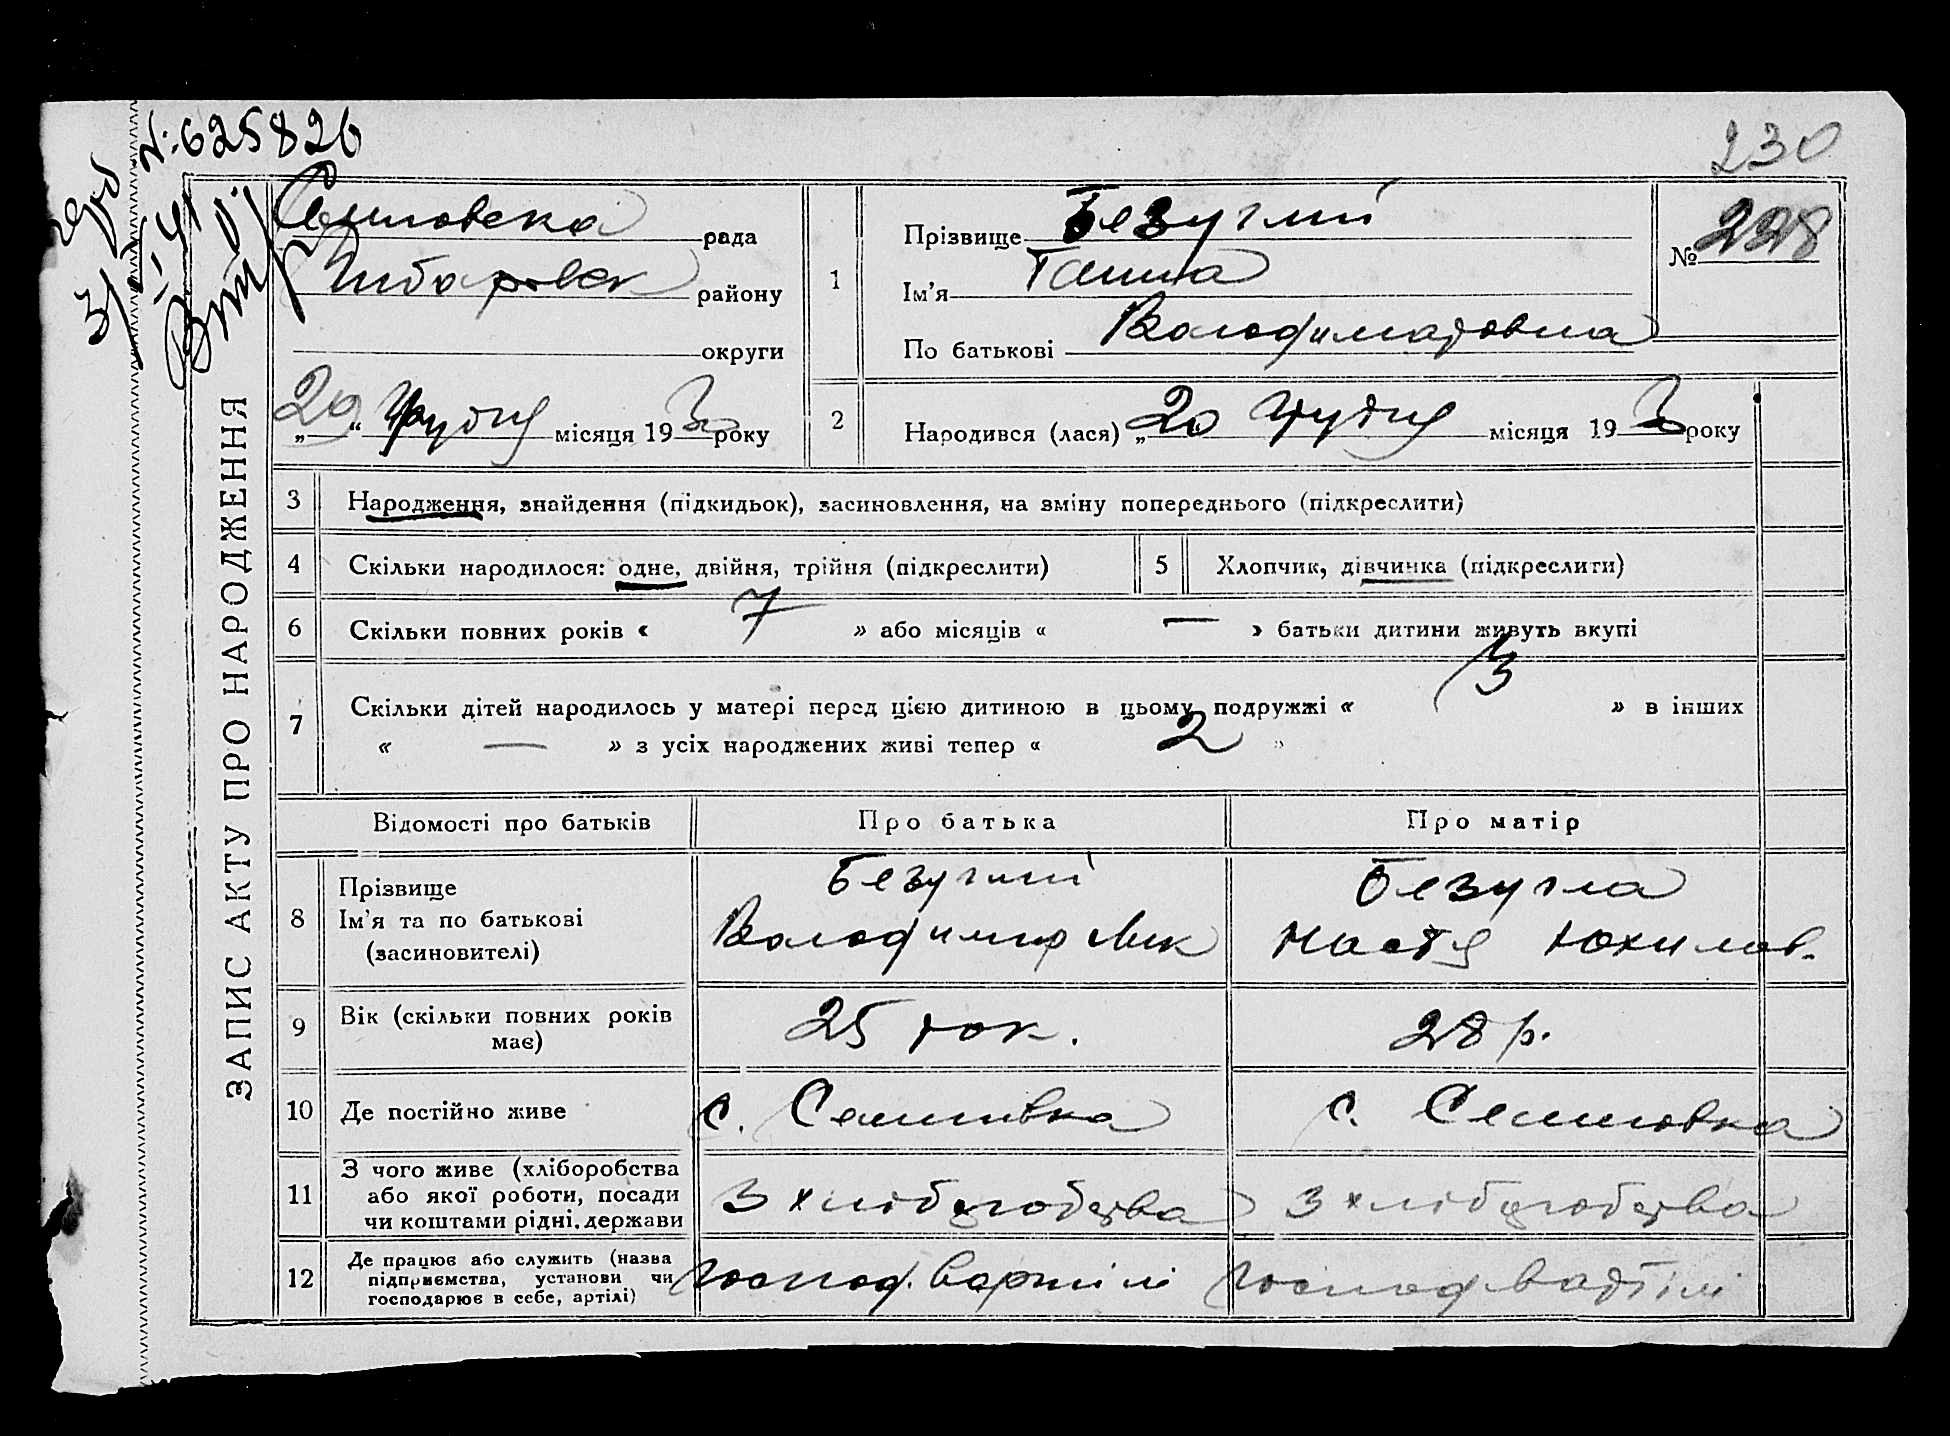 № 625826
230
ЗАПИС АКТУ ПРО НАРОДЖЕННЯ
рада
району
округи
„29“ Грудня місяця 1930 року
1
Прізвище Безуглий
Ім'я Ганна
По батькові Володимировна
№ 228
2
Народився (лася) „20 Грудня місяця 1930 року
3 Народження, знайдення (підкидьок), засиновлення, на зміну попереднього (підкреслити)
4 Скільки народилося: одне, двійня, трійня (підкреслити)
5 Хлопчик, дівчинка (підкреслити)
6 Скільки повних років « 7 » або місяців « — » батьки дитини живуть вкупі
7 Скільки дітей народилось у матері перед цією дитиною в цьому подружжі « 3 » в інших
« — » з усіх народжених живі тепер « 2 »
Відомості про батьків
Про батька
Про матір
8
Прізвище
Ім'я та по батькові
(засиновителі)
Безуглий
Володимир
Безугла
Настя Юхимов.
9
Вік (скільки повних років
має)
25 рок.
28 р.
10 Де постійно живе
с.
с.
11
З чого живе (хліборобства
або якої роботи, посади
чи коштами рідні, держави
З хліборобства
З хліборобства
12
Де працює або служить (назва
підприємства, установи чи
господарює в себе, артілі)
Господ. в артілі
Господ в артілі